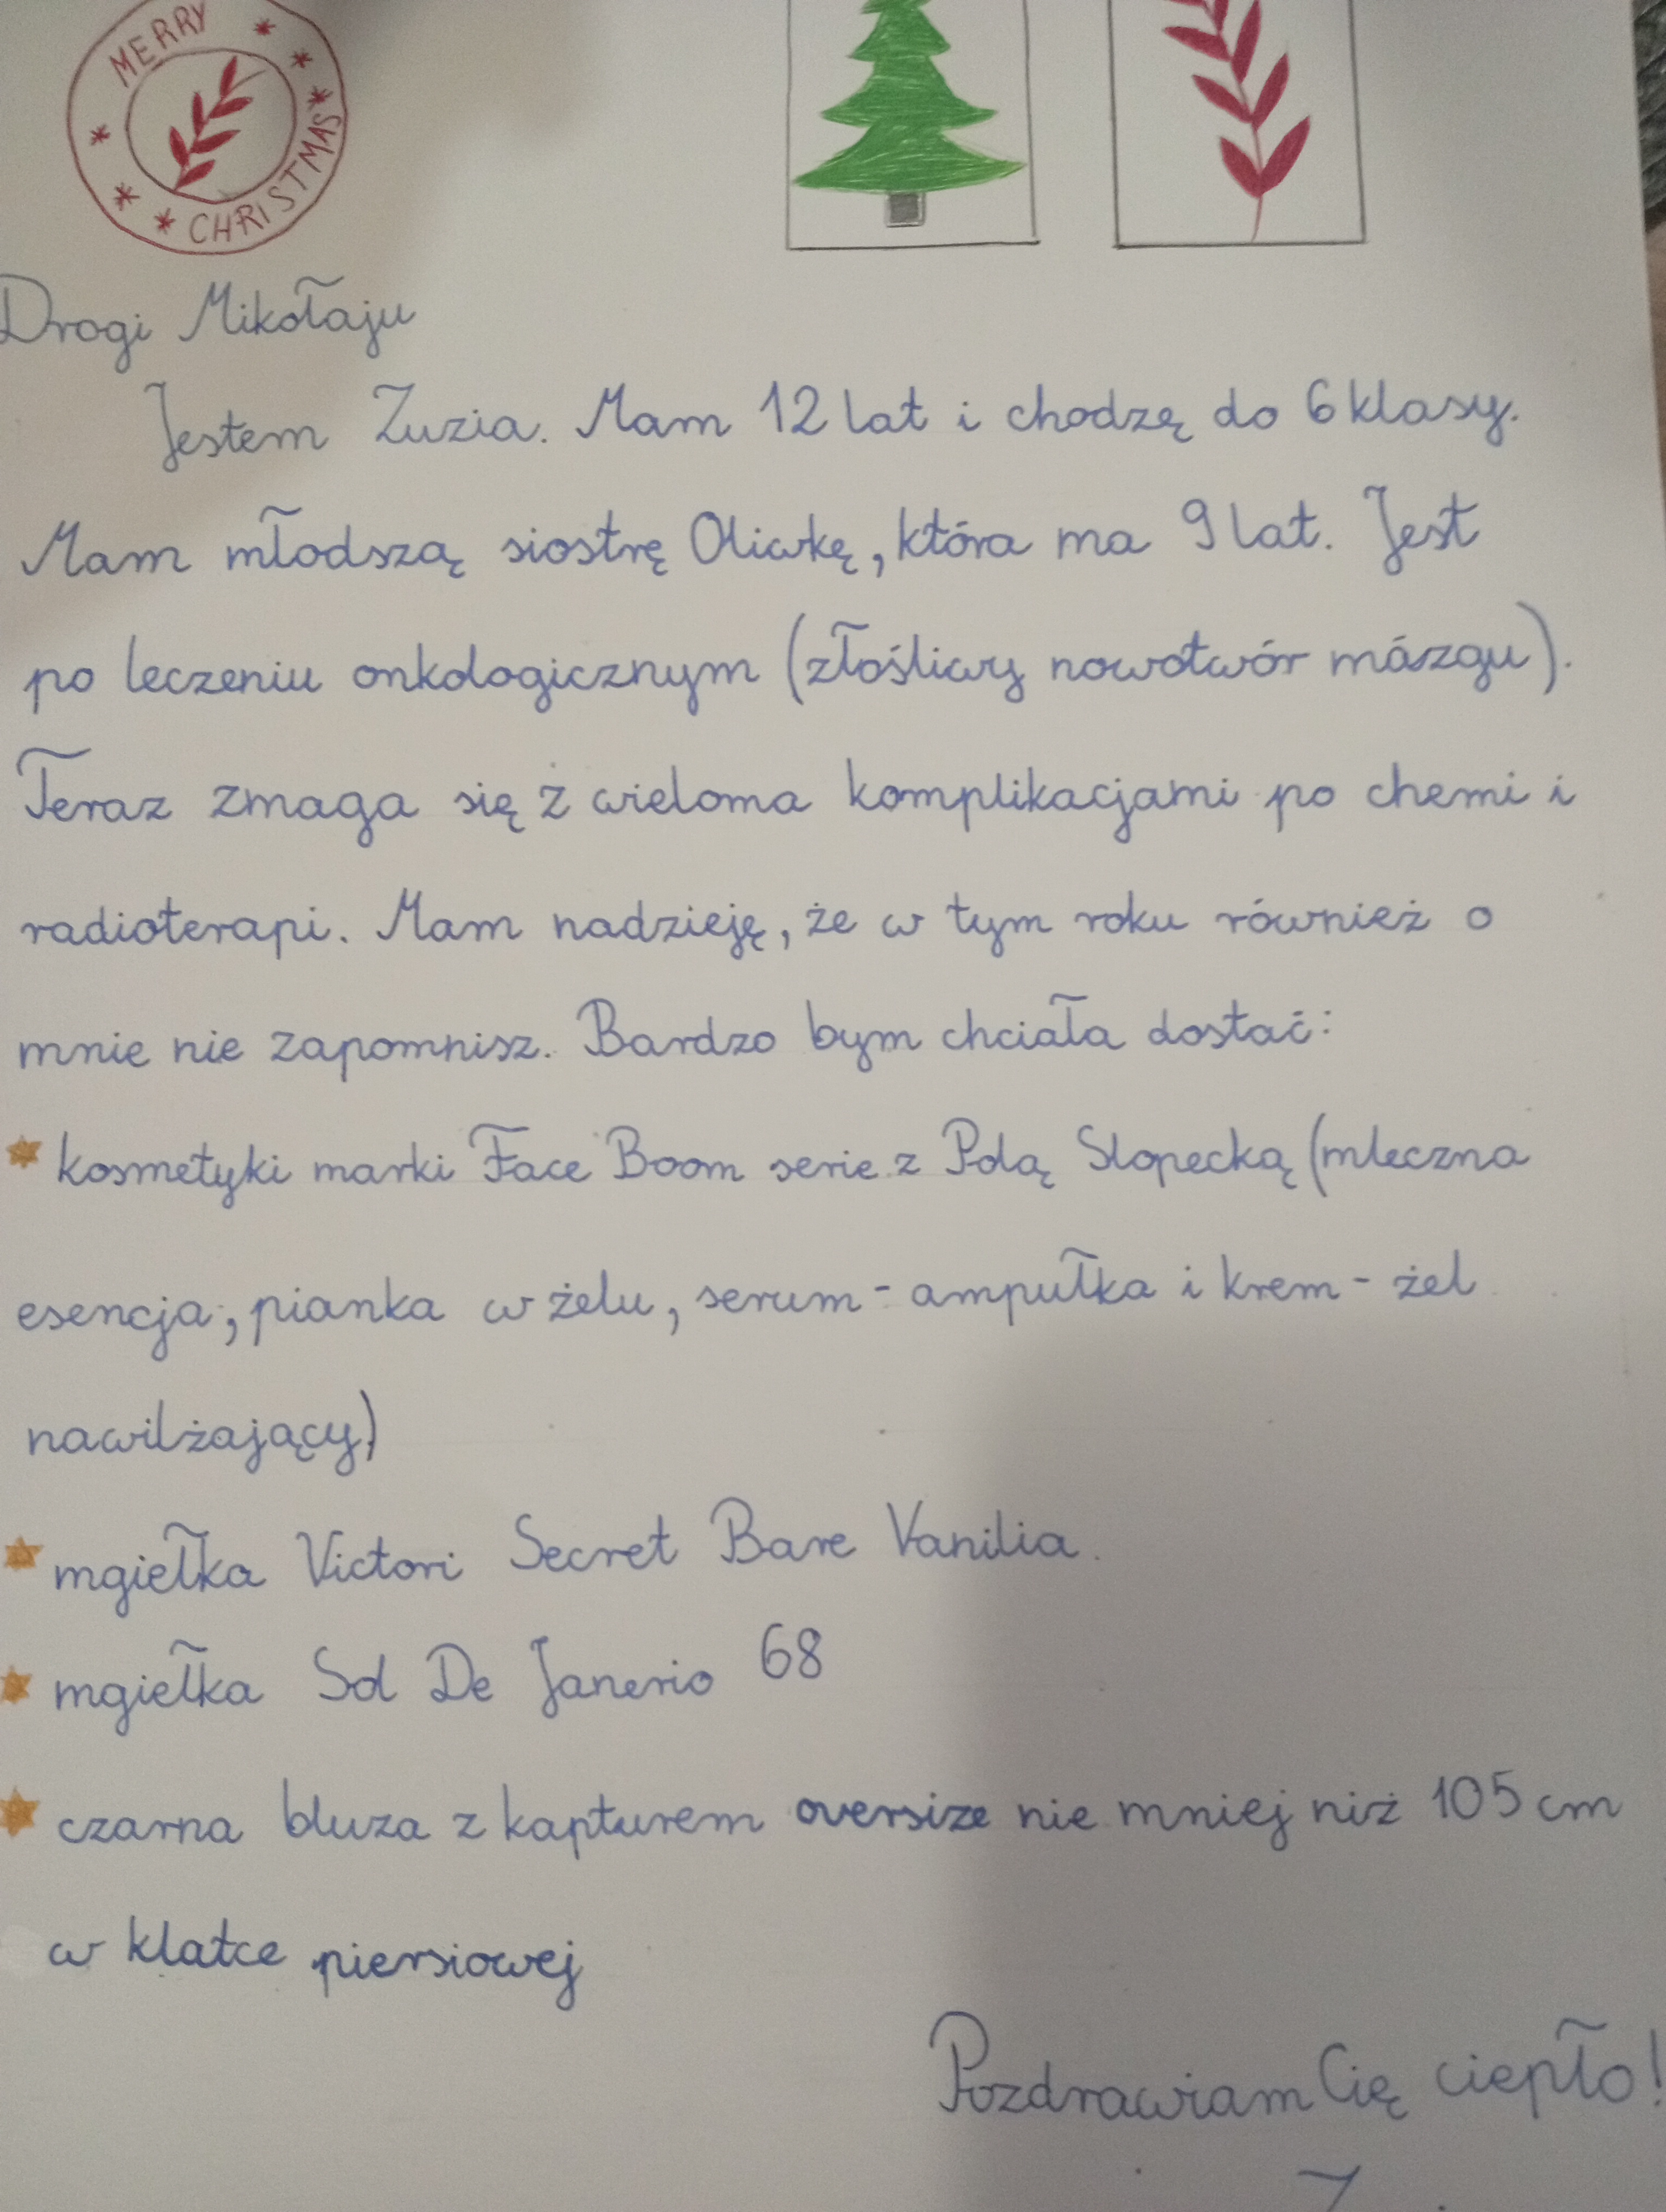 MERRY
CHRISTMAS
Drogi Mikołaju
Jestem Zuzia. Mam 12 lat i chodzę do 6 klasy.
Mam młodszą siostrę Oliwkę, która ma 9 lat. Jest
po leczeniu onkologicznym (złośliwy nowotwór mózgu).
Teraz zmaga się z wieloma komplikacjami po chemi i
radioterapi. Mam nadzieję, że w tym roku również o
mnie nie zapomnisz. Bardzo bym chciała dostać:
kosmetyki marki Face Boom serie z Polą Slopecką (mleczna
esencja, pianka w żelu, serum - ampułka i krem - żel
nawilżający)
mgiełka Victori Secret Bare Vanilia.
mgiełka Sol De Janerio 68
czarna bluza z kapturem oversize nie mniej niż 105 cm
w klatce piersiowej
Pozdrawiam Cię ciepło!